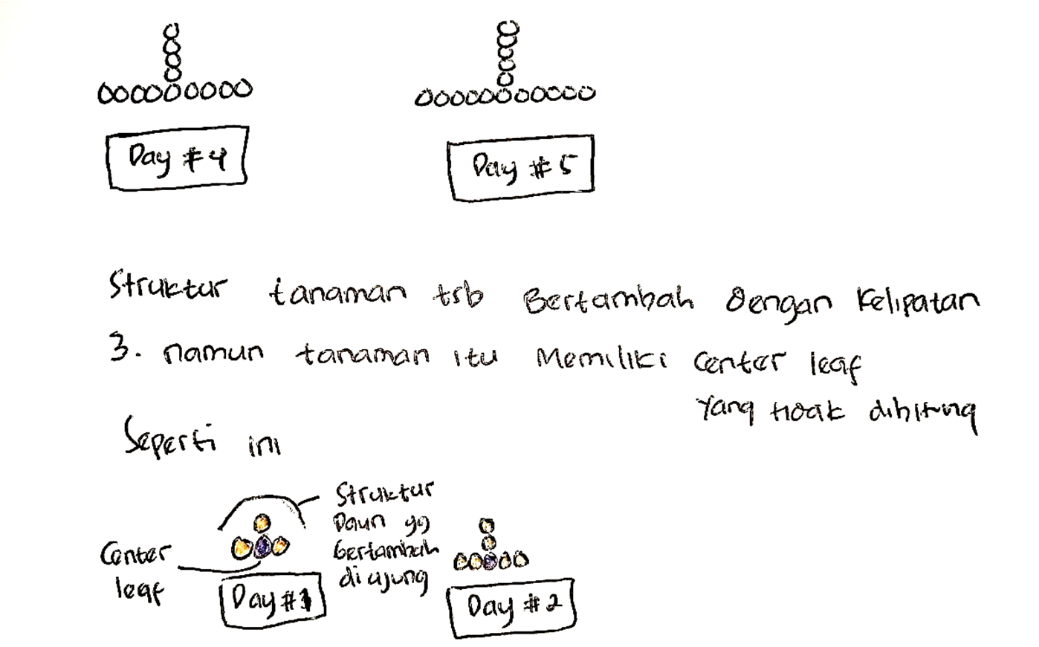 Day #4
Day #5
Struktur tanaman trb Bertambah Dengan Kelipatan
3. namun tanaman itu Memiliki center leaf
yang tidak dihitung
Seperti ini
Struktur
Daun yg
bertambah
di ujung
Center
leaf
Day #1
Day #2